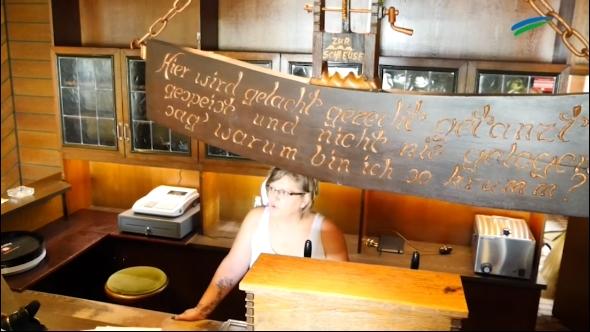 ZUR
SCHLEUSE
Hier wird gelacht gezecht getanzt
gespeist und nicht nie gelogen
sag' warum bin ich so krumm?